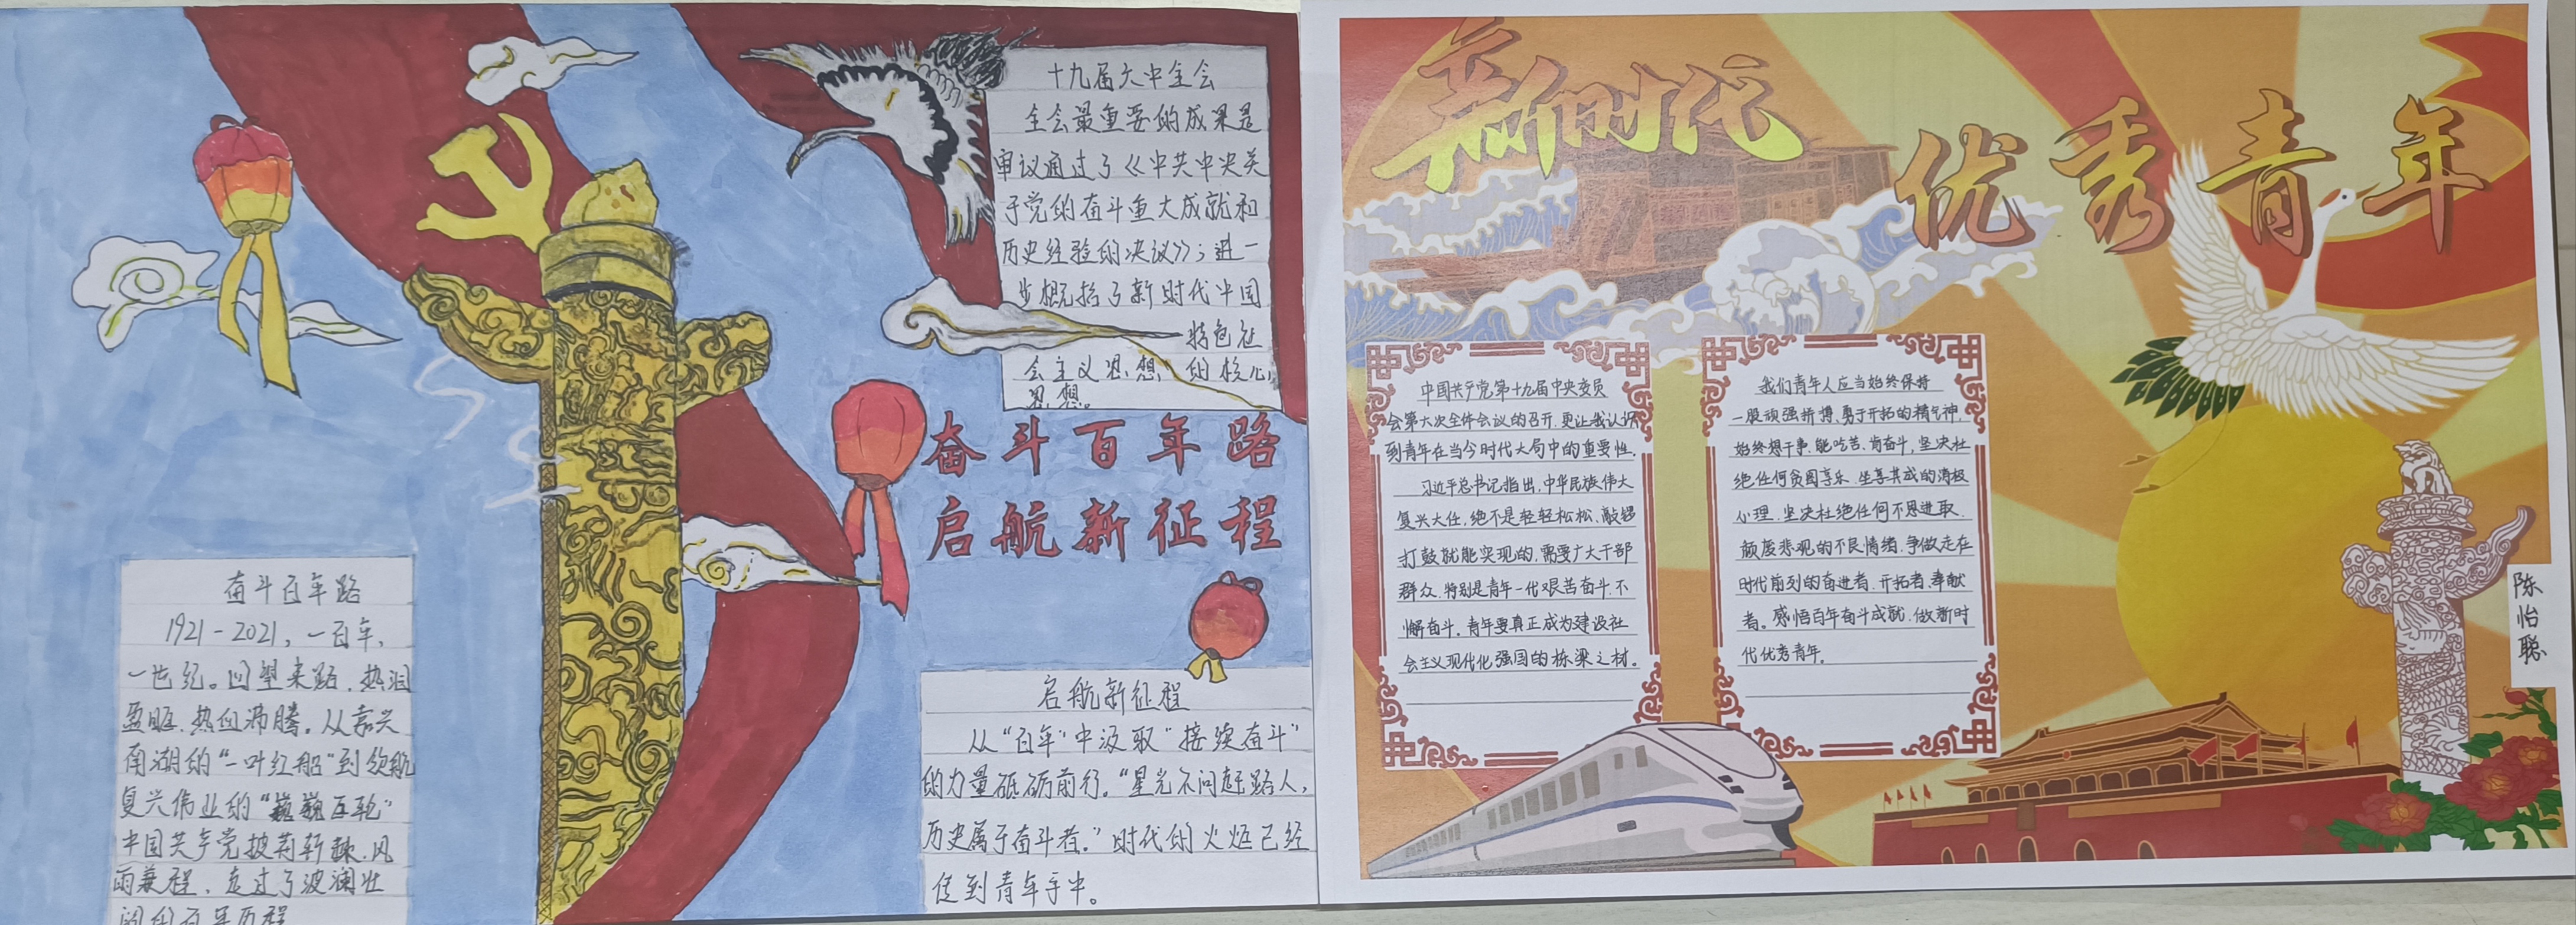 十九届六中全会
全会最重要的成果是
审议通过了《中共中央关
于党的奋斗重大成就和
历史经验的决议》；进一
步概括了新时代中国
特色社
会主义思想"的核心
思想。
奋斗百年路
启航新征程
奋斗百年路
1921-2021，一百年，
一世纪。回望来路，热泪
盈眶，热血沸腾。从嘉兴
南湖的"一叶红船"到领航
复兴伟业的"巍巍巨轮"
中国共产党披荆斩棘、风
雨兼程，走过了波澜壮
阔的百年历程
启航新征程
从"百年"中汲取"接续奋斗"
的力量砥砺前行。"星光不问赶路人，
历史属于奋斗者。"时代的火炬已经
传到青年手中。
新时代
优秀青年
中国共产党第十九届中央委员
会第六次全体会议的召开，更让我认识
到青年在当今时代大局中的重要性。
习近平总书记指出，中华民族伟大
复兴大任，绝不是轻轻松松、敲锣
打鼓就能实现的，需要广大干部
群众，特别是青年一代艰苦奋斗、不
懈奋斗。青年要真正成为建设社
会主义现代化强国的栋梁之材。
我们青年人应当始终保持
一股顽强拼搏、勇于开拓的精气神，
始终想干事、能吃苦、肯奋斗，坚决杜
绝任何贪图享乐、坐享其成的消极
心理，坚决杜绝任何不思进取、
颓废悲观的不良情绪，争做走在
时代前列的奋进者、开拓者、奉献
者。感悟百年奋斗成就，做新时
代优秀青年。
陈怡聪